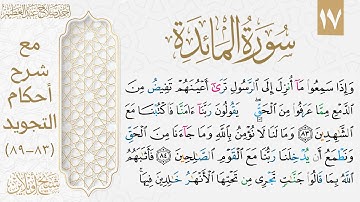 ١٧
سورة المائدة
مع
شرح
أحكام
التجويد
(٨٣-٨٩)
وَإِذَا سَمِعُوا۟ مَآ أُنزِلَ إِلَى ٱلرَّسُولِ تَرَىٰٓ أَعْيُنَهُمْ تَفِيضُ مِنَ
ٱلدَّمْعِ مِمَّا عَرَفُوا۟ مِنَ ٱلْحَقِّ ۖ يَقُولُونَ رَبَّنَآ ءَامَنَّا فَٱكْتُبْنَا مَعَ
ٱلشَّـٰهِدِينَ ٨٣ وَمَا لَنَا لَا نُؤْمِنُ بِٱللَّهِ وَمَا جَآءَنَا مِنَ ٱلْحَقِّ
وَنَطْمَعُ أَن يُدْخِلَنَا رَبُّنَا مَعَ ٱلْقَوْمِ ٱلصَّـٰلِحِينَ ٨٤ فَأَثَـٰبَهُمُ
ٱللَّهُ بِمَا قَالُوا۟ جَنَّـٰتٍ تَجْرِى مِن تَحْتِهَا ٱلْأَنْهَـٰرُ خَـٰلِدِينَ فِيهَا